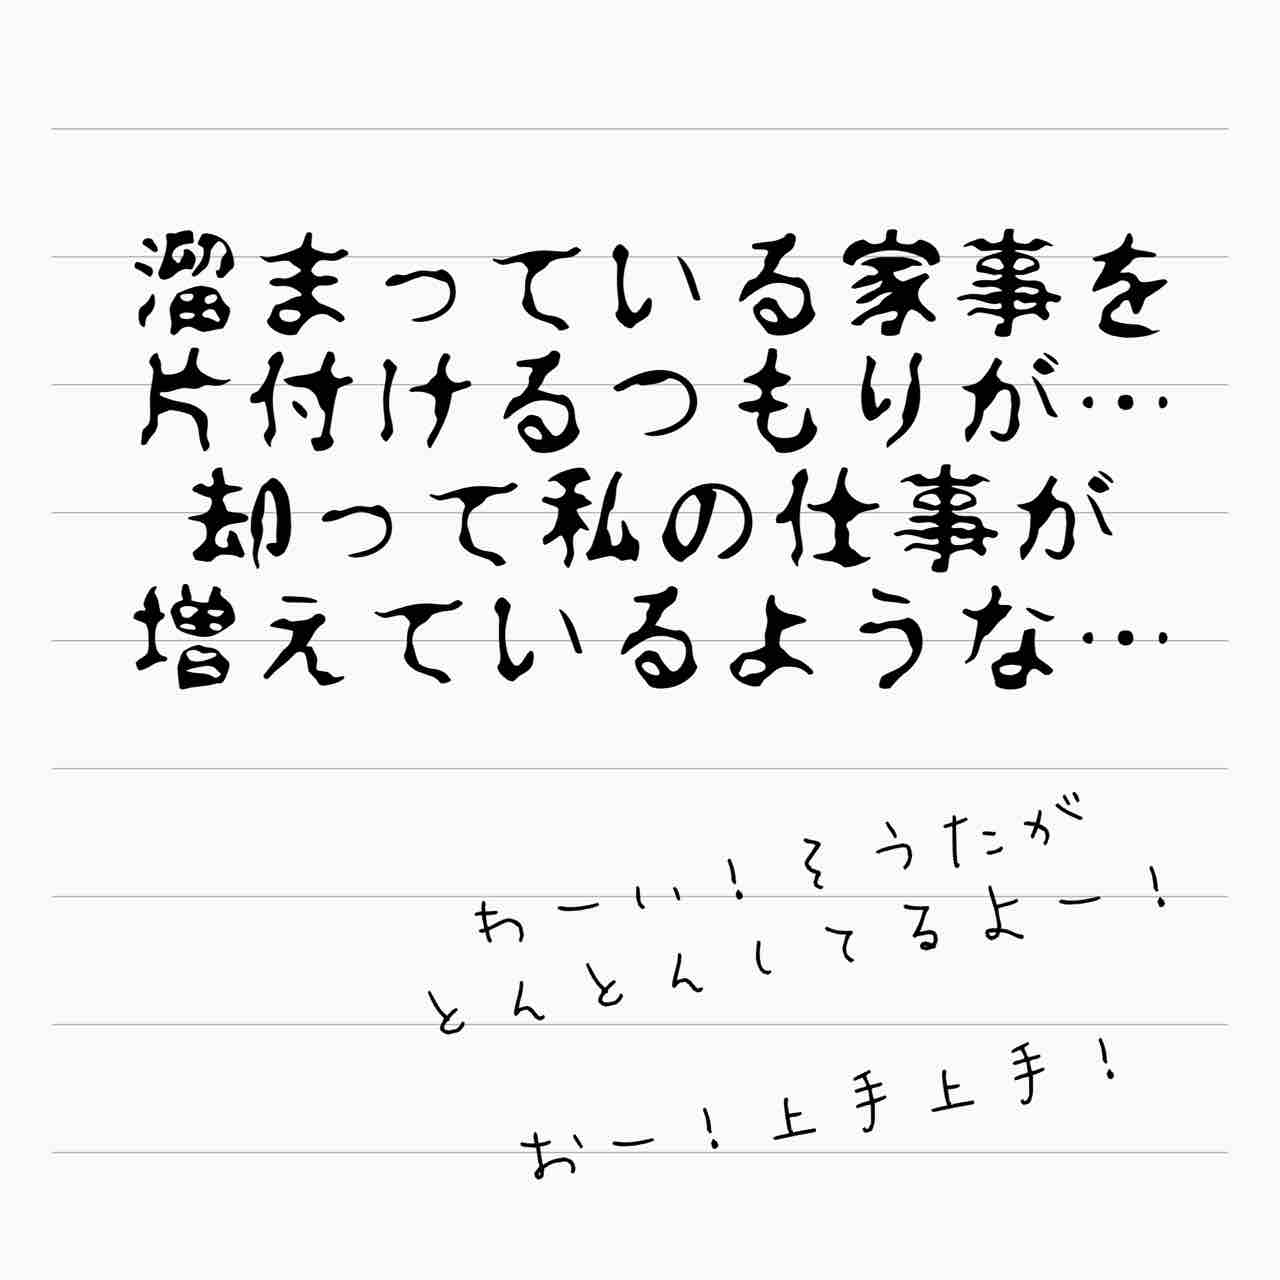 溜まっている家事を
片付けるつもりが…
却って私の仕事が
増えているような…
わーい！そうたが
とんとんしてるよー！
おー！上手上手！